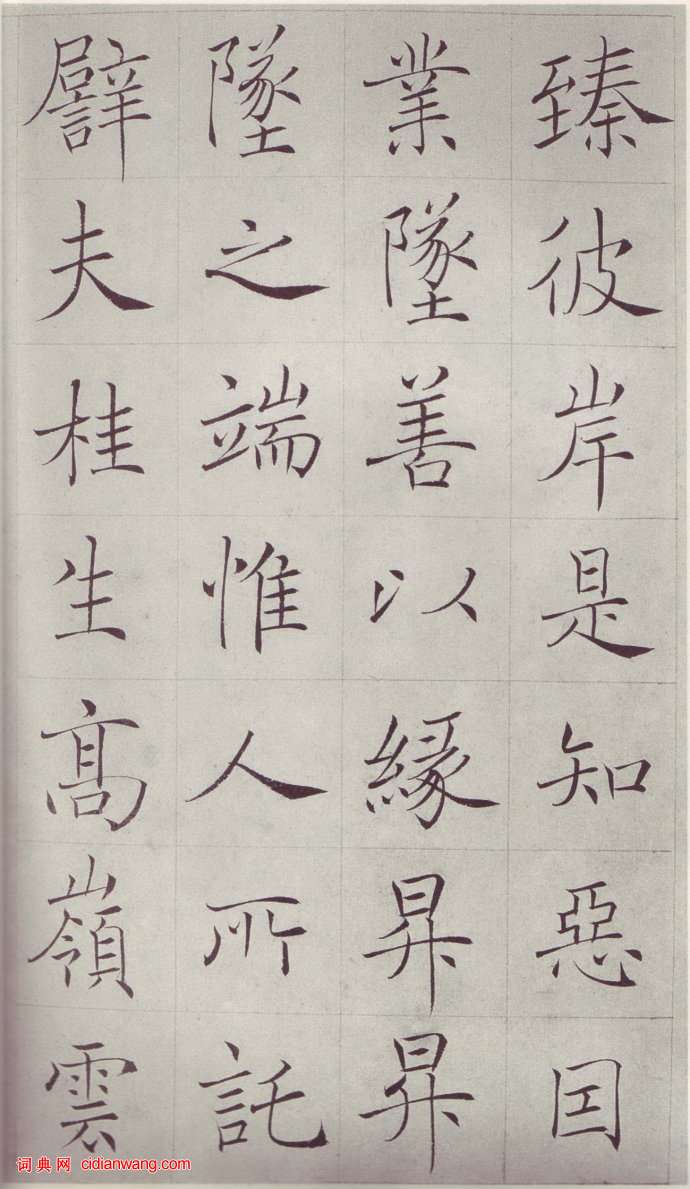 臻彼岸是知惡囙
業墜善以縁昇昇
墜之端惟人所託
譬夫桂生髙嶺雲
词典网 cidianwang.com